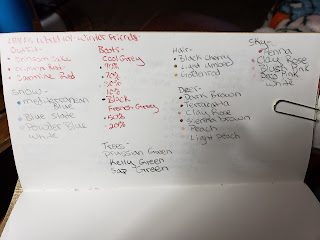 Winter Friends
Outfit-
Crimson Lake
Crimson Red
Carmine Red
Snow-
Mediterranean
Blue
Blue Slate
Powder Blue
White
Boots-
Cool Grey
70%
50%
10%
Black
French Grey
50%
20%
Trees-
Prussian Green
Kelly Green
Sap Green
Hair-
Black Cherry
Light Umber
Goldenrod
Deer-
Dark Brown
Terracotta
Clay Rose
Sienna Brown
Peach
Light Peach
Sky-
Henna
Clay Rose
Blush Pink
Deco Pink
White